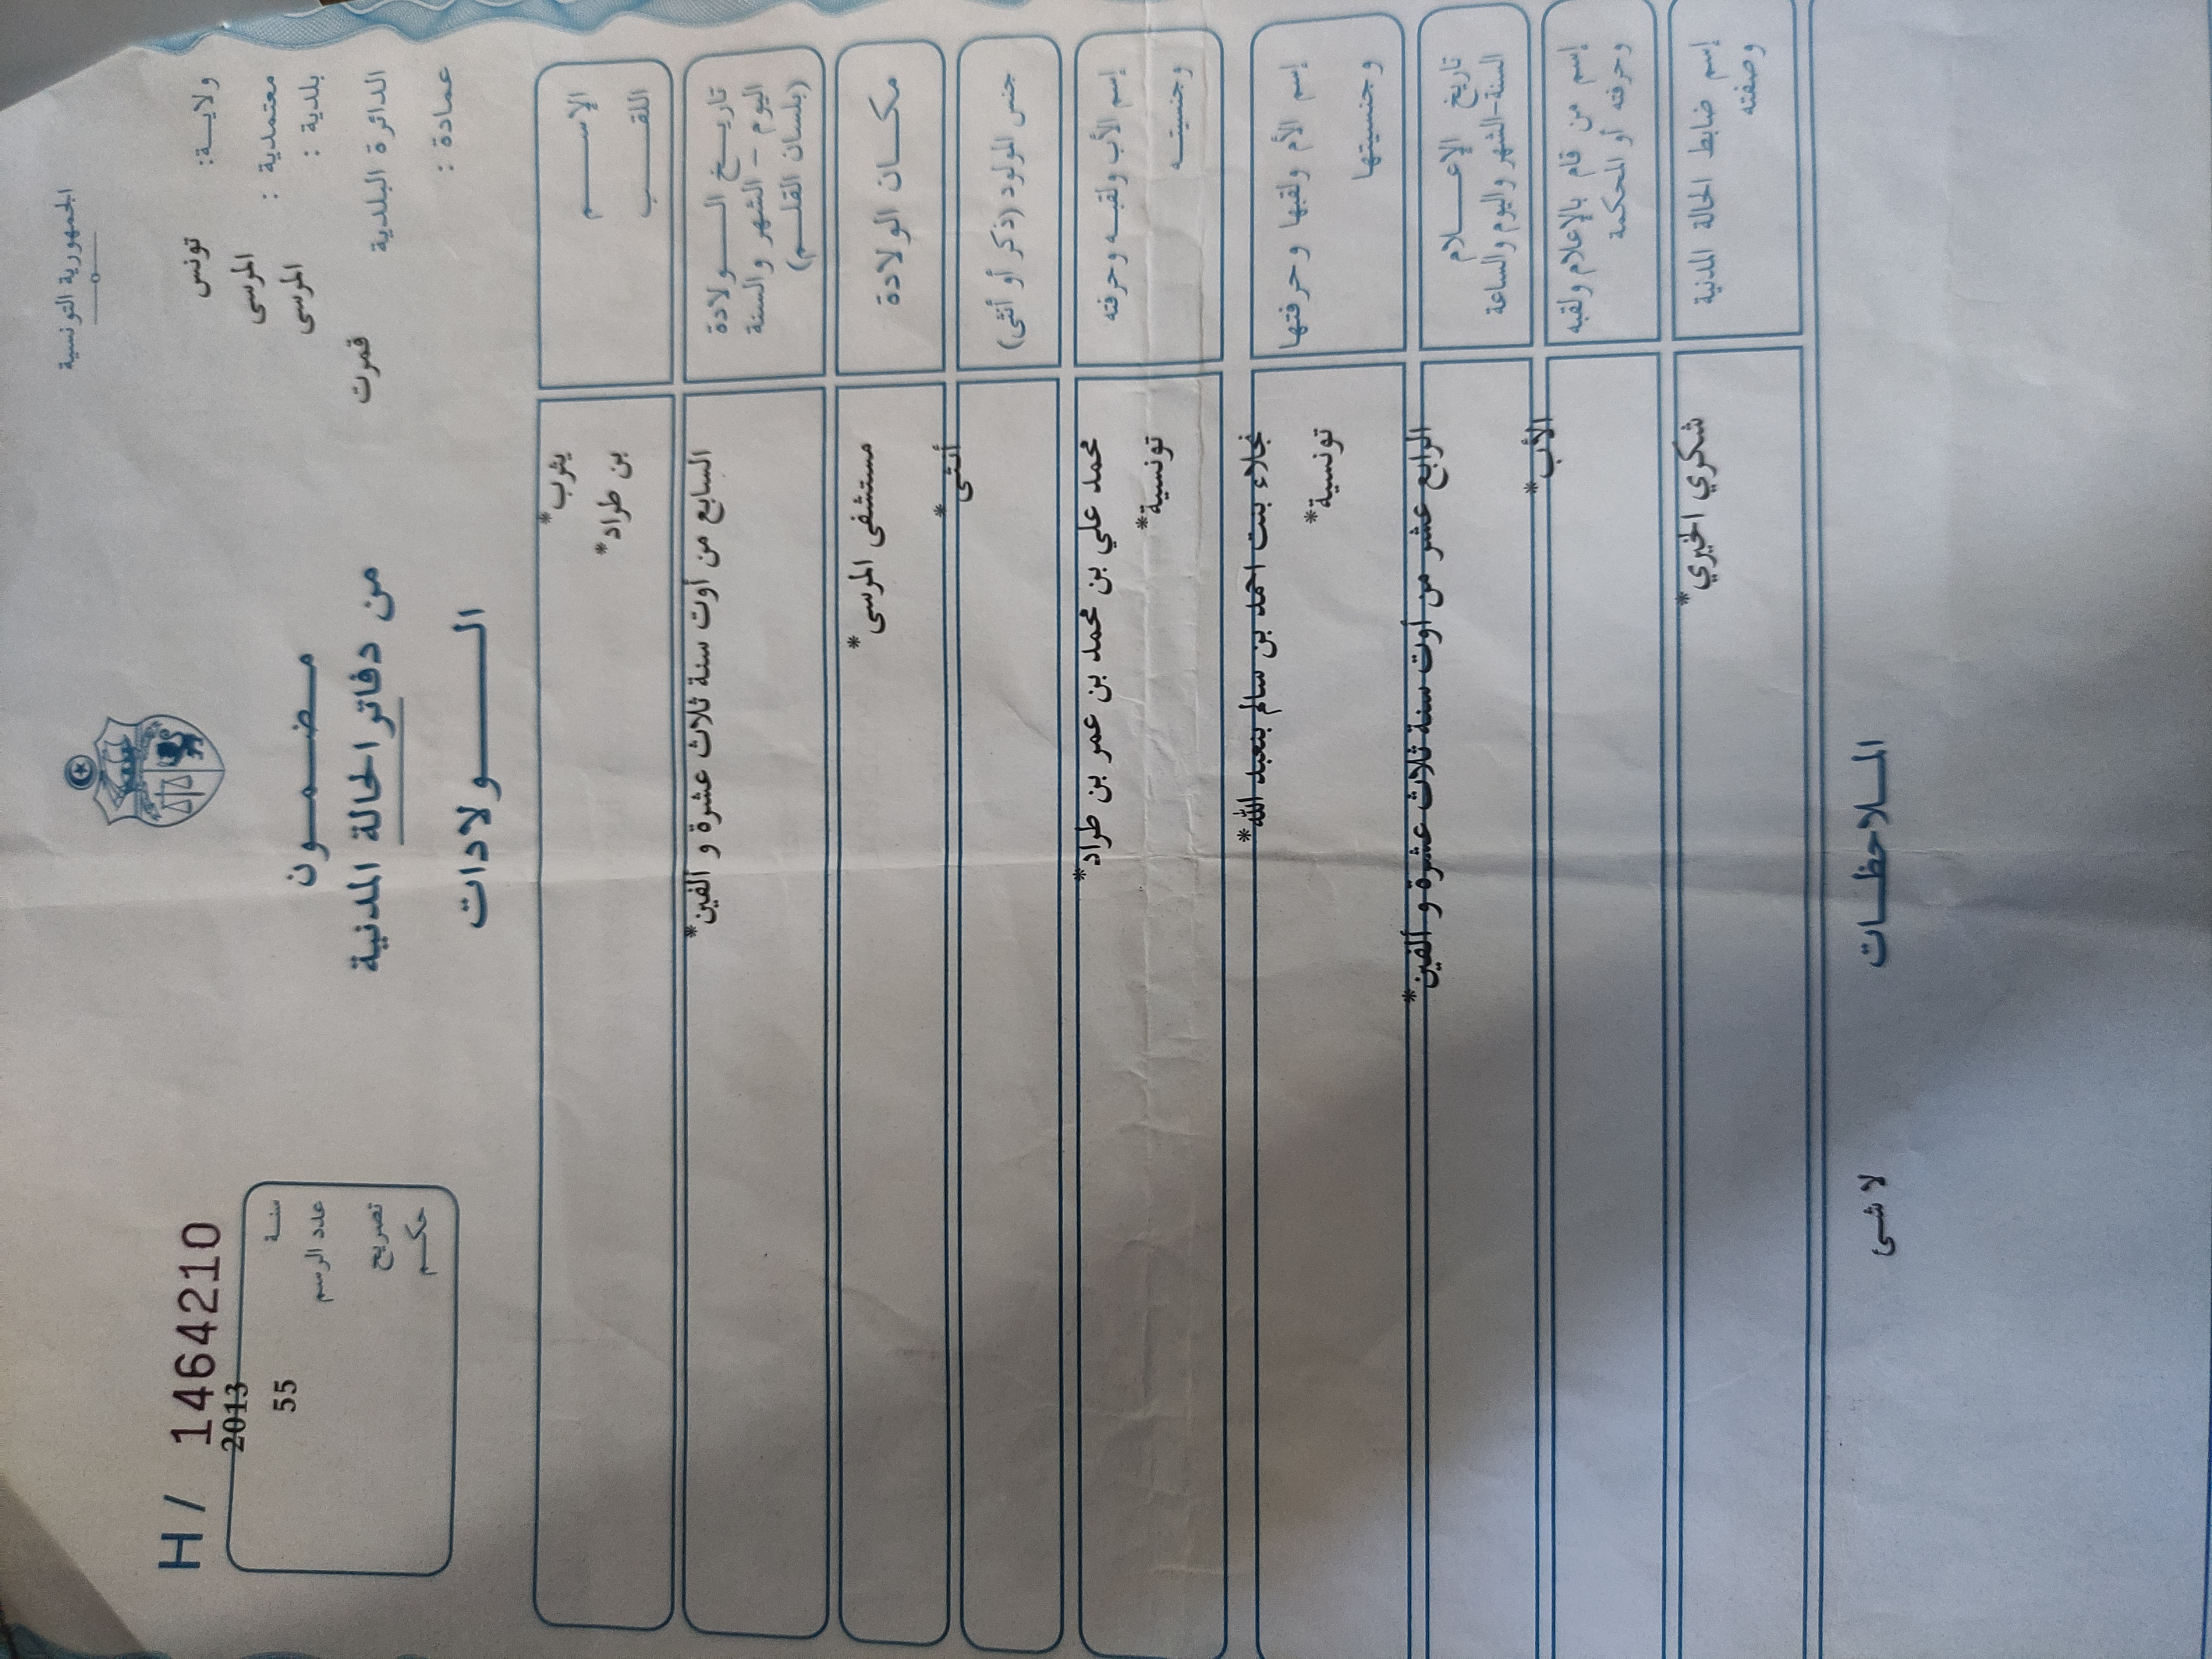 الجمهورية التونسية
ولايـــة: تونس
معتمدية : المرسى
بلدية : المرسى
الدائرة البلدية قمرت
عمادة :
مـضـمـــون
من دفاتر الحالة المدنية
الـــولادات
H / 1464210
سنـة 2013
عدد الرسم 55
تصريح
حكـم
الإســـم يثرب*
اللقـــب بن طراد*
تاريـــخ الـــولادة
اليوم - الشهر والسنة
(بلسان القلـــم)
السابع من أوت سنة ثلاث عشرة و ألفين*
مكـــان الولادة مستشفى المرسى*
جنس المولود (ذكر أو أنثى) أنثى*
إسم الأب ولقبـــه وحرفته محمد علي بن محمد بن عمر بن طراد*
وجنسيتـــه تونسية*
إسم الأم ولقبها وحرفتها نجلاء بنت احمد بن سالم بنعبد الله*
وجنسيتها تونسية*
تاريخ الإعـــلام
السنة-الشهر واليوم والساعة
الرابع عشر من أوت سنة ثلاث عشرة و ألفين*
إسم من قام بالإعلام ولقبه
وحرفته أو المحكمة
الأب*
إسم ضابط الحالة المدنية
وصفته
شكري الخيري*
المـــلاحظـــات
لا شئ